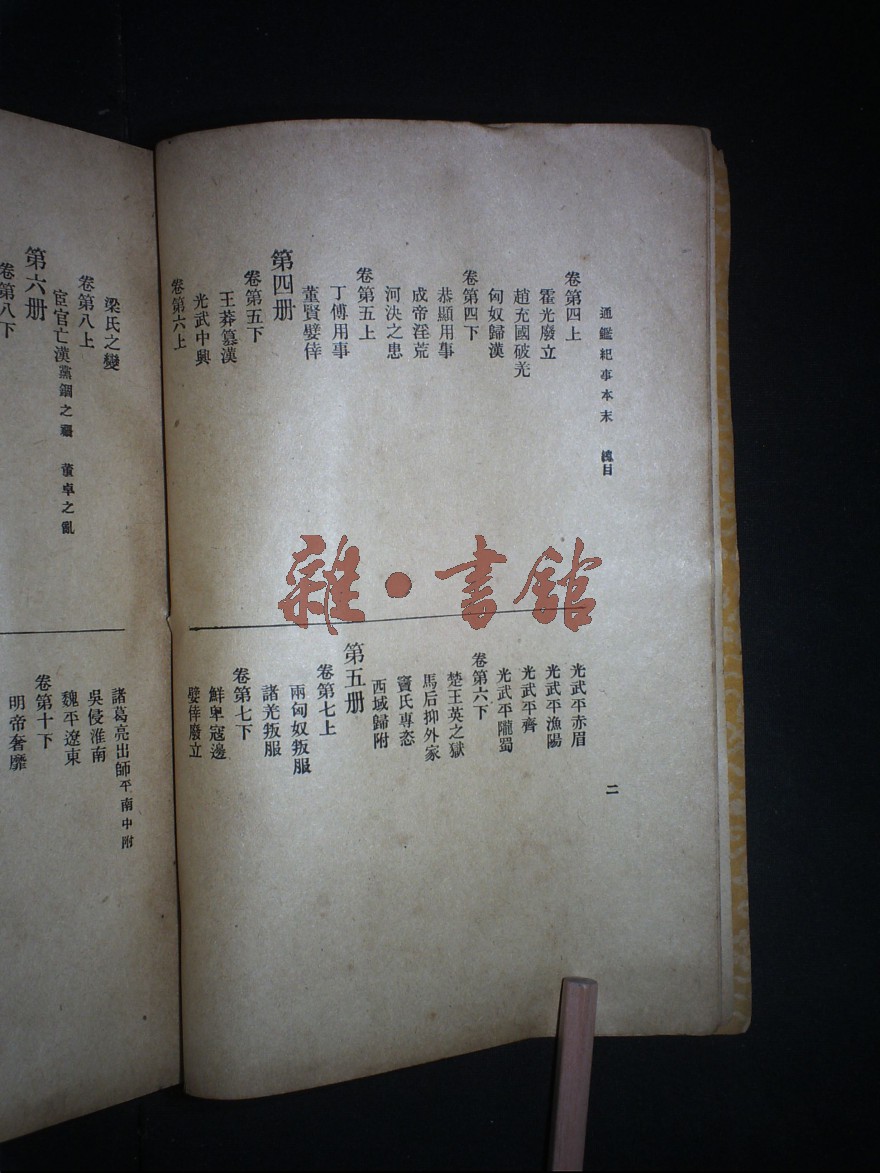 通鑑紀事本末 總目
二
卷第四上
霍光廢立
趙充國破羌
匈奴歸漢
卷第四下
恭顯用事
成帝淫荒
河決之患
卷第五上
丁傅用事
董賢嬖倖
第四册
卷第五下
王莽篡漢
光武中興
卷第六上
光武平赤眉
光武平漁陽
光武平齊
光武平隴蜀
卷第六下
楚王英之獄
馬后抑外家
竇氏專恣
西域歸附
第五册
卷第七上
兩匈奴叛服
諸羌叛服
卷第七下
鮮卑寇邊
嬖倖廢立
梁氏之變
卷第八上
宦官亡漢黨錮之禍 董卓之亂
第六册
卷第八下
諸葛亮出師平南中附
吳侵淮南
魏平遼東
卷第十下
明帝奢靡
雜·書館